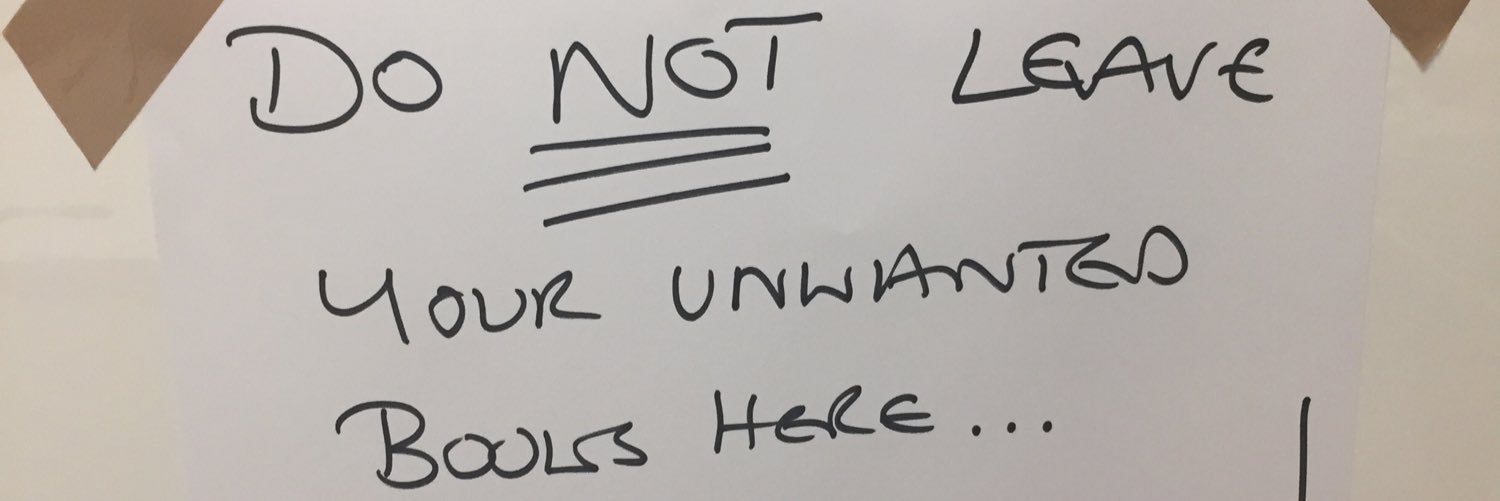 DO NOT LEAVE
YOUR UNWANTED
BOOKS HERE...